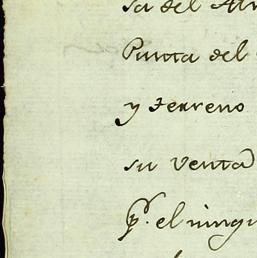 sa del Al
Punta del
y terreno
su venta
pr. el ningu